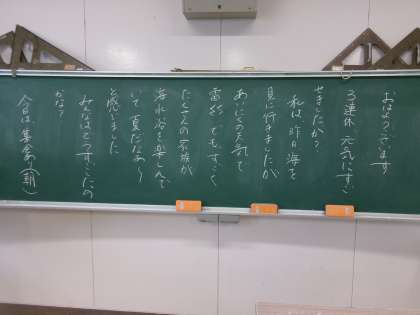 おはようございます
3連休 元気にすご
せましたか?
私は、昨日海を
見に行きましたが
あいにくの天気で
でも、すごく
たくさんの家族が
海水浴を楽しんで
いて 夏だなあ〜
と感じました
みんなはどうすごしたの
かな?
今日は集会(朝)